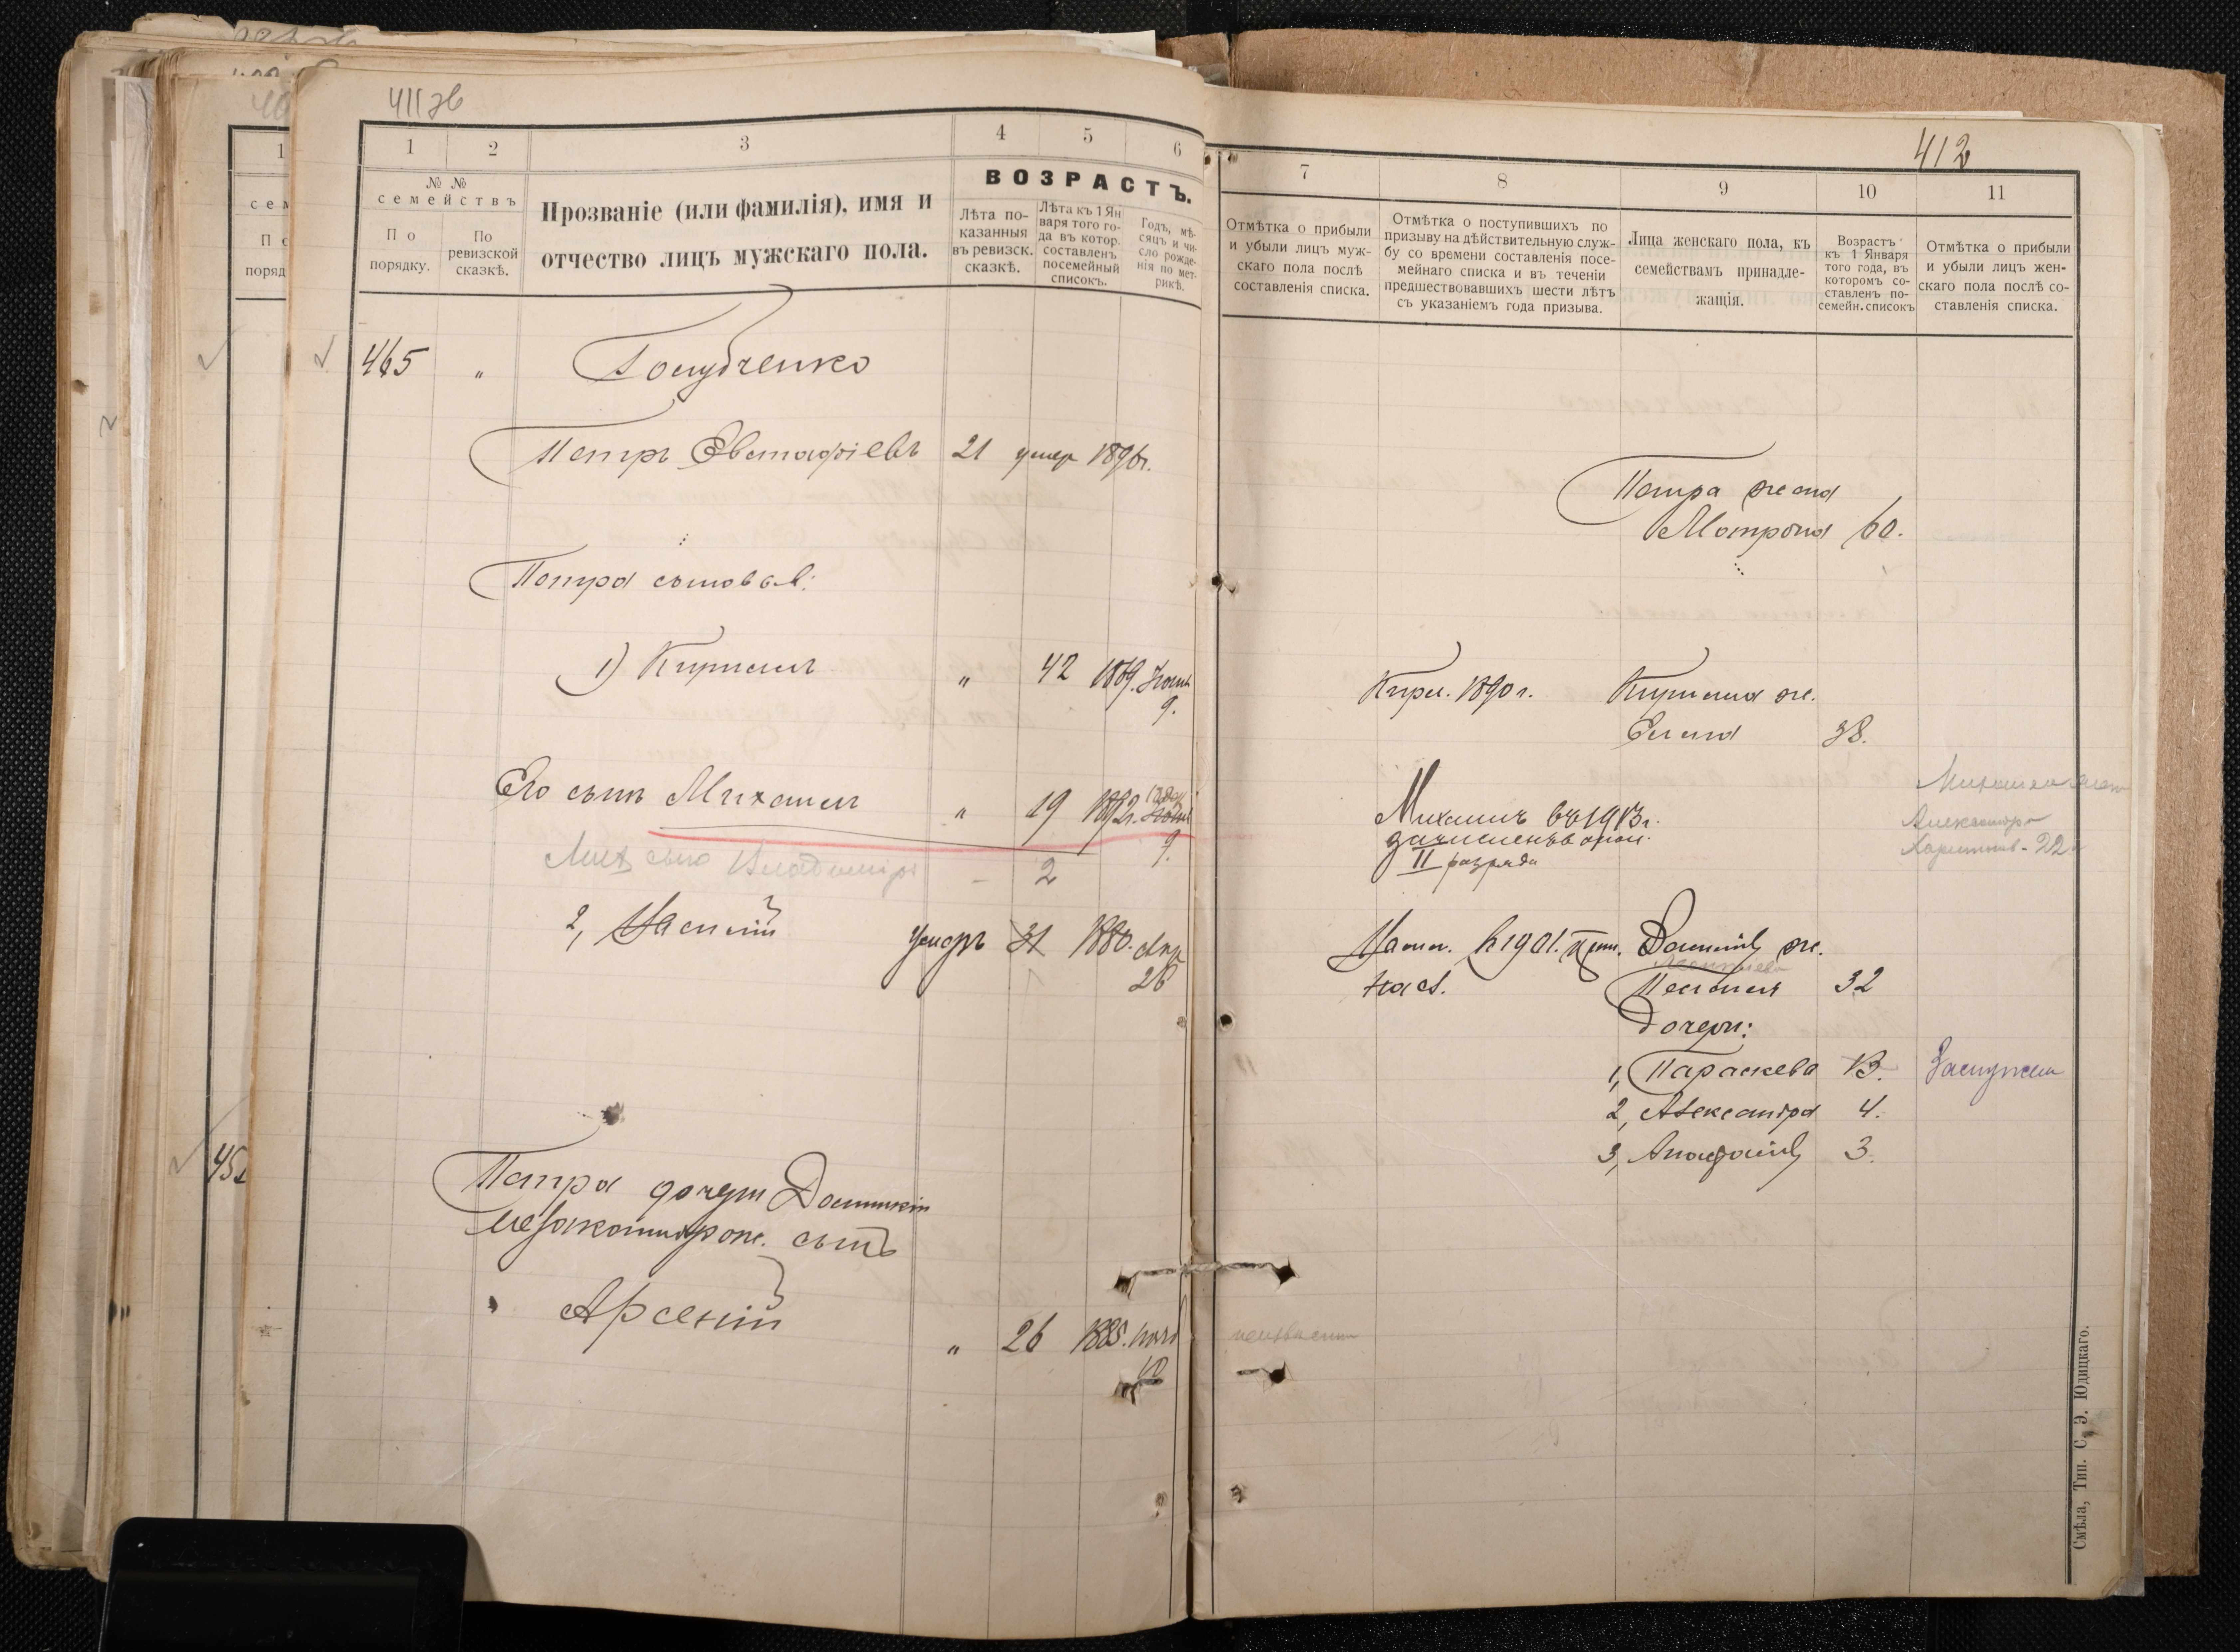 411зв
1
2
3
4
5
6
№ №
семействъ
По
порядку.
По
ревизской
сказкѣ.
Прозваніе (или фамилія), имя и
отчество лицъ мужскаго пола.
ВОЗРАСТЪ.
Лѣта по-
казанныя
въ ревизск.
сказкѣ.
Лѣта къ 1 Ян
варя того го-
да въ котор.
составленъ
посемейный
списокъ.
Годъ, мѣ-
сяцъ и чи-
сло рожде-
нія по мет-
рикѣ.
465 "
Голубченко
Петръ Евстафіевъ 21 умер 1896г.
Петра сыновья:
1) Кириллъ " 42 1869. Іюня
9.
Его сынъ Михаилъ " 19 1892г.
9.
Мих сынъ Владиміръ - 2
2, Василій умеръ 31 1880. Апр
26
Петра дочери
незаконнорож. сынъ
Арсеній
" 26 1885. мая
10
412
7
8
9
10
11
Отмѣтка о прибыли
и убыли лицъ муж-
скаго пола послѣ
составленія списка.
Отмѣтка о поступившихъ по
призыву на дѣйствительную служ-
бу со времени составленія посе-
мейнаго списка и въ теченіи
предшествовавшихъ шести лѣтъ
съ указаніемъ года призыва.
Лица женскаго пола, къ
семействамъ принадле-
жащія.
Возрастъ
къ 1 Января
того года, въ
которомъ со-
ставленъ по-
семейн. списокъ
Отмѣтка о прибыли
и убыли лицъ жен-
скаго пола послѣ со-
ставленія списка.
Петра жена
Матрона 60.
Кирил. 1890 г. Кирилла ж.
Елена 38.
Михаилъ въ 1913г.
зачисленъ в опол.
II разряда
Михаила жена
Александра
22
Васил. в 1901. Василія ж.
Пелагея 32
Дочери:
1, Параскева 13. Замужем
2, Александра 4.
3, Анастасія 3.
неизвестн
Смѣла, Тип. С. Э. Юдицкаго.